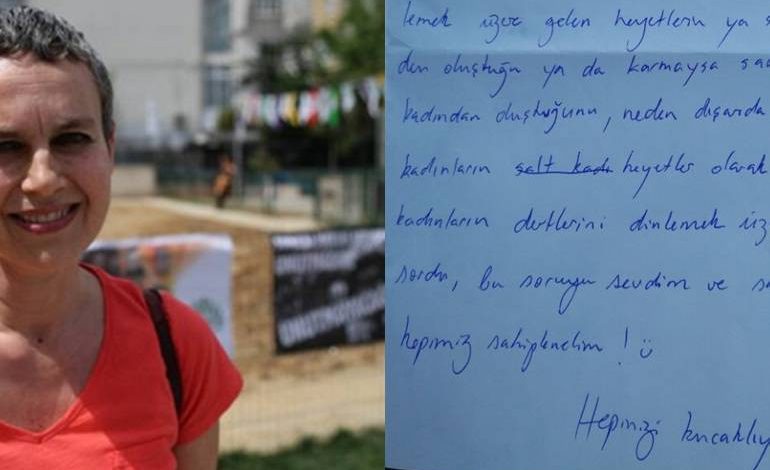 lemek üzere gelen heyetlerin ya s
den oluştuğu ya da karmaysa sad
kadından oluştuğunu, neden dışarda
kadınların salt kadı heyetler olarak
kadınların dertlerini dinlemek üz
sordu, bu soruyu sevdim ve s
hepimiz sahiplenelim !
Hepinizi kucaklıy